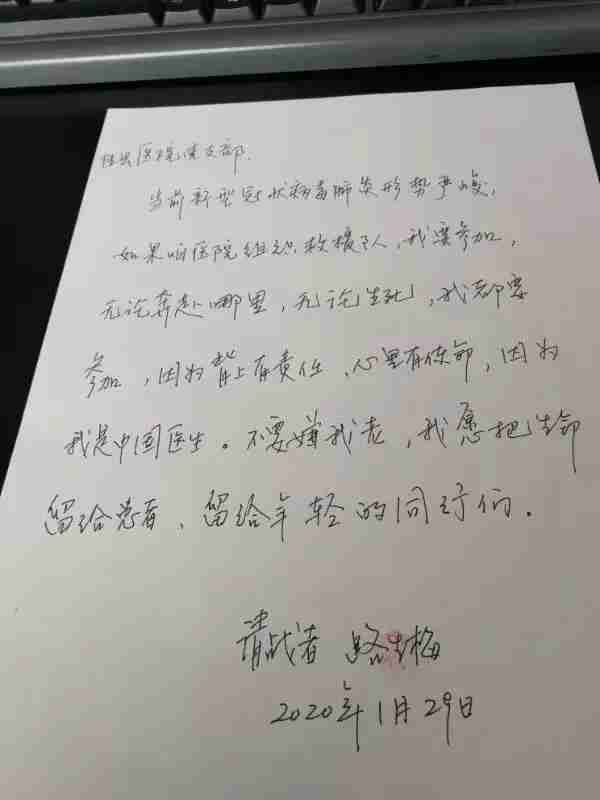 佳县医院党支部.
当前新型冠状病毒肺炎形势严峻,
如果咱医院组织救援队,我要参加,
无论奔赴哪里,无论生死,我都要
参加,因为背上有责任,心里有使命,因为
我是中国医生。不要嫌我老,我愿把生命
留给患者、留给年轻的同行们。
请战者 路生梅
2020年1月29日